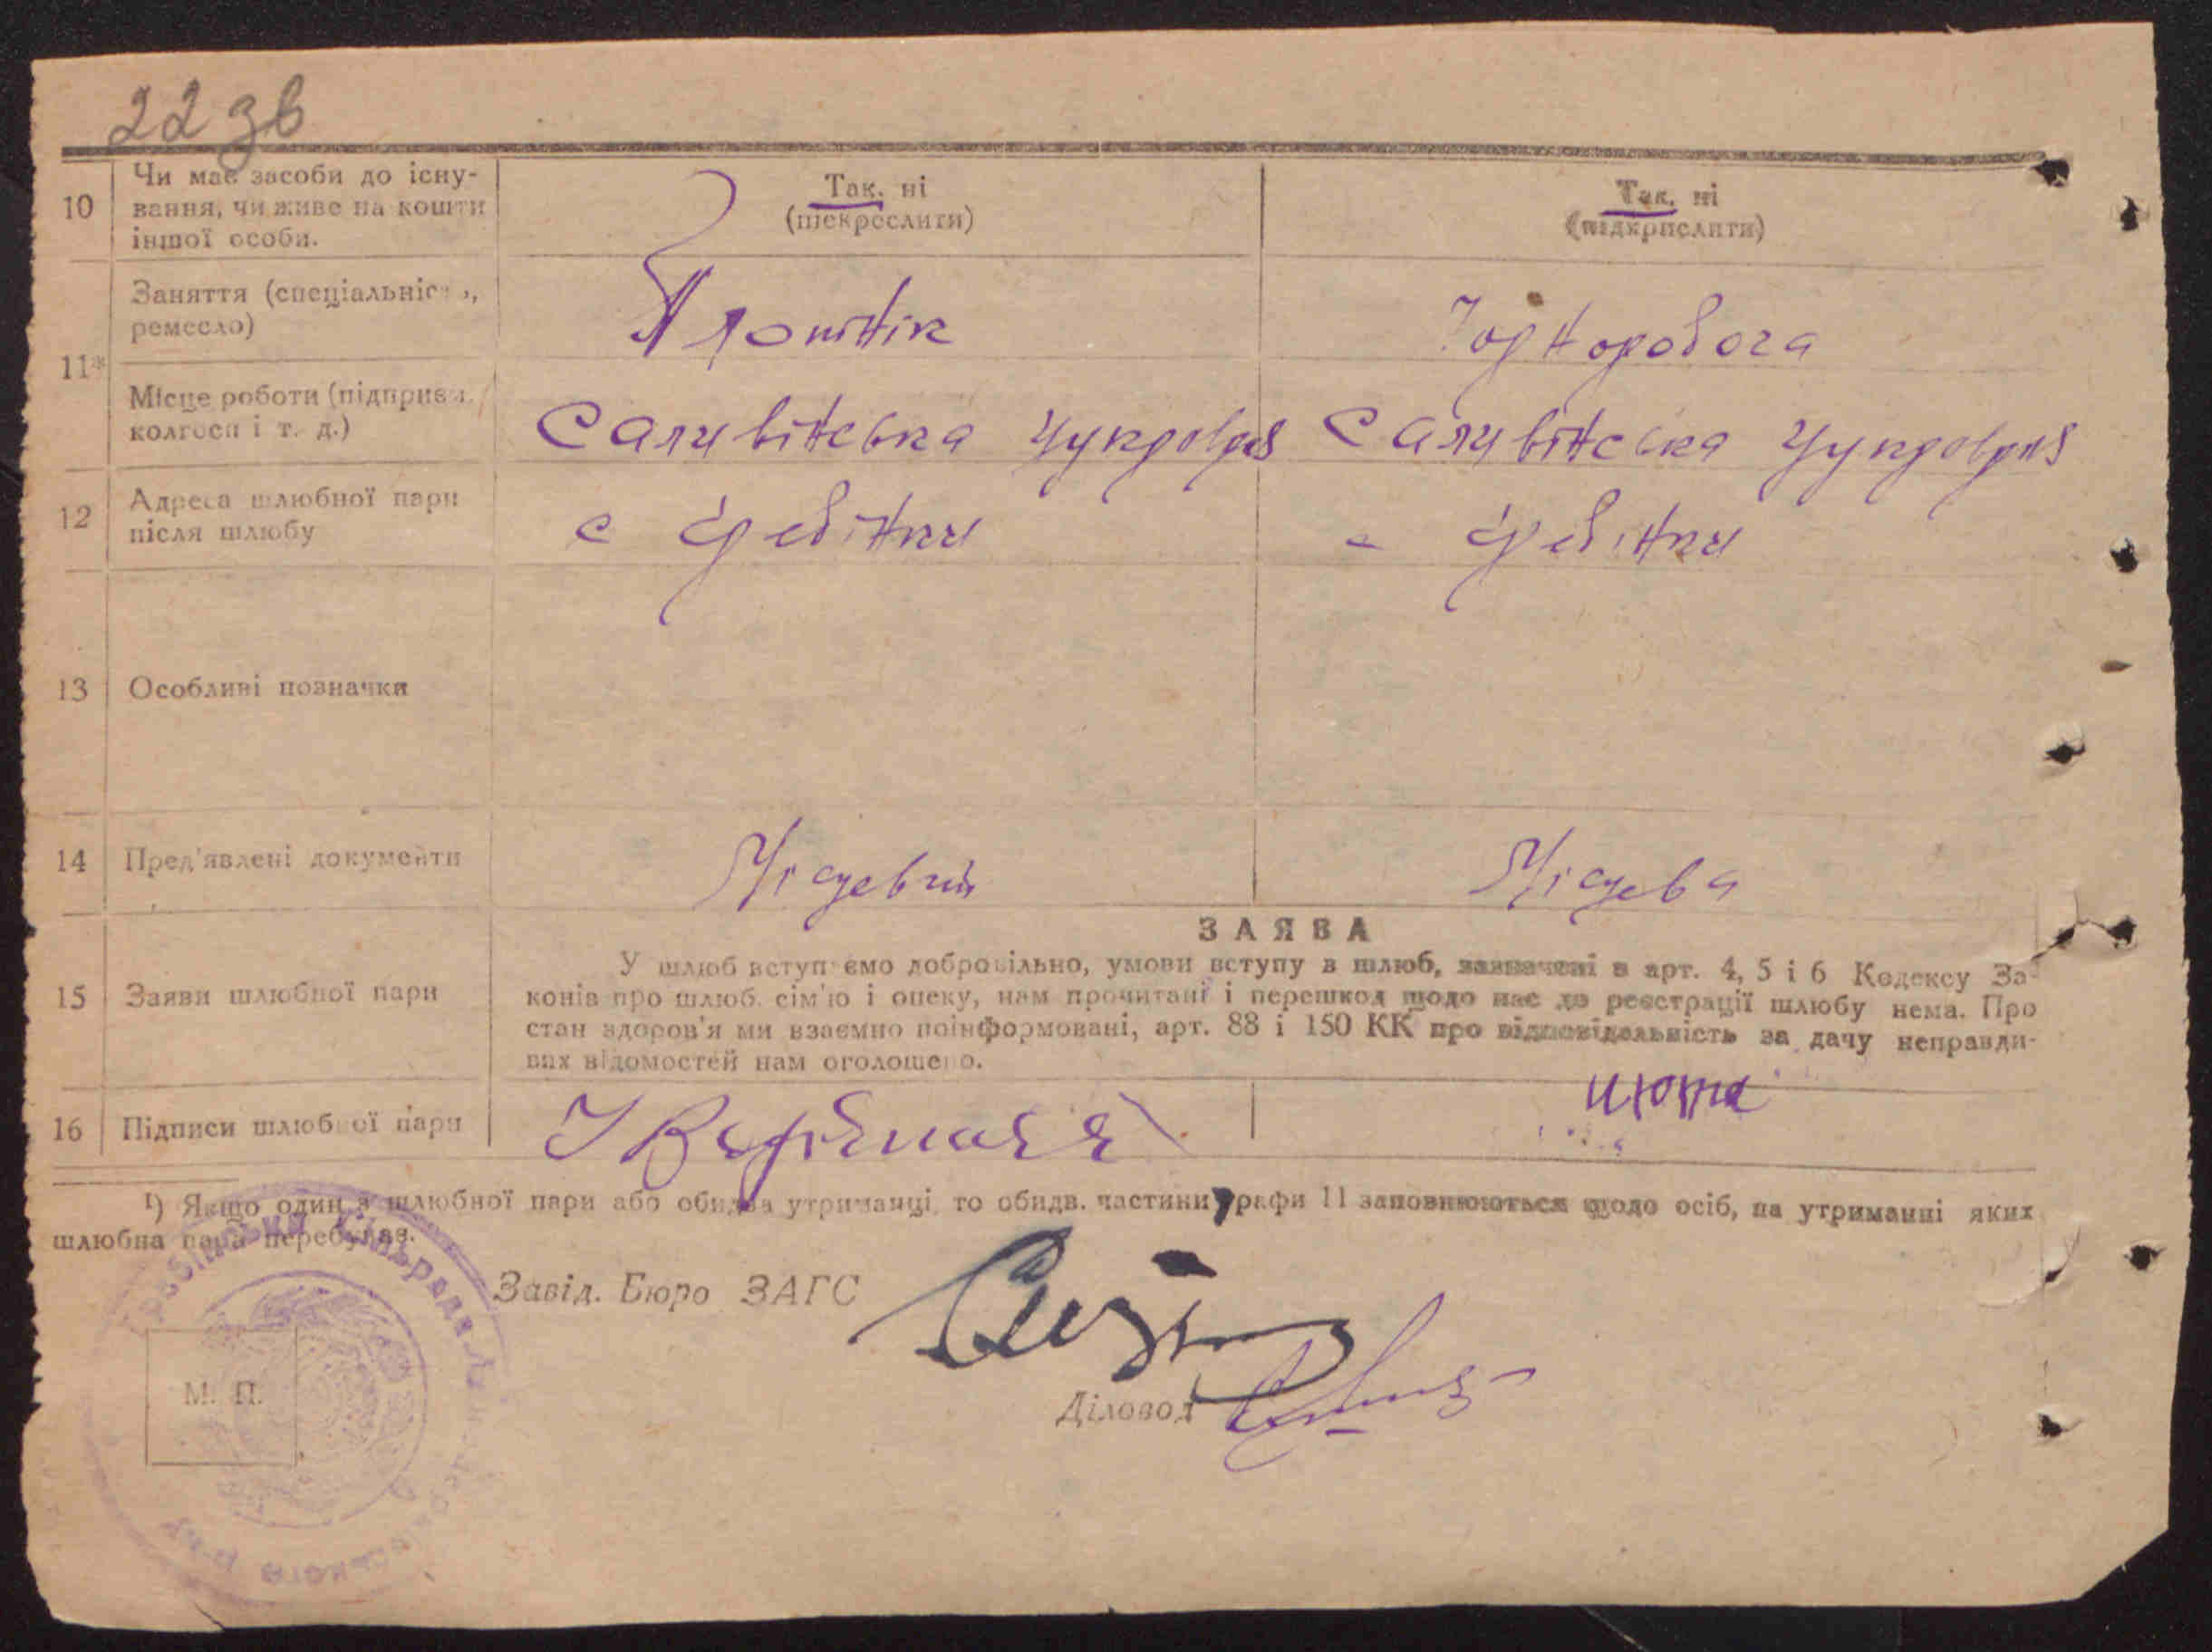 22 зв
10 Чи має засоби до існу-
вання, чи живе на кошти
іншої особи.
Так, ні
(підкреслити)
Так, ні
(підкрислити)
11*
Заняття (спеціальність,
ремесло)
Плотнік
Чорноробоча
Місце роботи (підприєм.
колгосп і т. д.)
Саливінська
Саливінська
12 Адреса шлюбної пари
після шлюбу
с Гребінки
с Гребінки
13 Особливі позначки
14 Пред'явлені документи
Місцевий
Місцева
15 Заяви шлюбної пари
ЗАЯВА
У шлюб вступаємо добровільно, умови вступу в шлюб, зазначені в арт. 4, 5 і 6 Кодексу За-
конів про шлюб. сім'ю і опеку, нам прочитані і перешкод щодо нас до реєстрації шлюбу нема. Про
стан здоров'я ми взаємно поінформовані, арт. 88 і 150 КК про відповідальність за дачу неправди-
вих відомостей нам оголошено.
16 Підписи шлюбної пари
¹) Якщо один з шлюбної пари або обидва утриманці, то обидв. частини графи 11 заповнюються щодо осіб, на утриманні яких
шлюбна пара перебуває.
Гребінська Сільрада
Завід. Бюро ЗАГС
Діловод
М. П.
р-ну